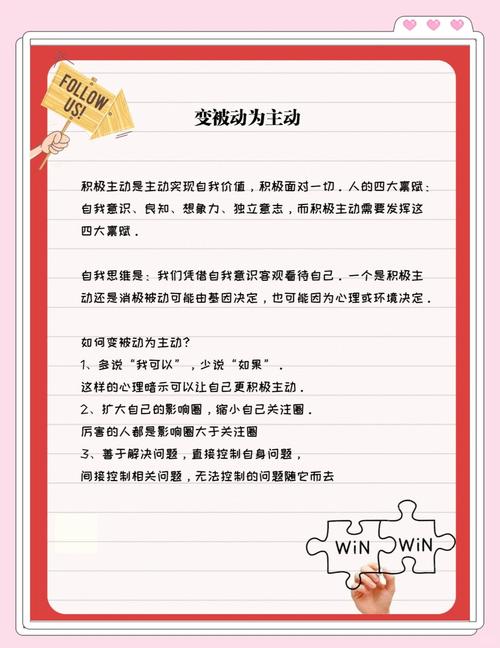 FOLLOW
US!
变被动为主动
积极主动是主动实现自我价值，积极面对一切．人的四大禀赋：
自我意识、良知、想象力、独立意志，而积极主动需要发挥这
四大禀赋．
自我思维是：我们凭借自我意识客观看待自己．一个是积极主
动还是消极被动可能由基因决定，也可能因为心理或环境决定．
如何变被动为主动？
1、多说“我可以”，少说“如果”．
这样的心理暗示可以让自己更积极主动．
2、扩大自己的影响圈，缩小自己关注圈．
厉害的人都是影响圈大于关注圈
3、善于解决问题，直接控制自身问题，
间接控制相关问题，无法控制的问题随它而去
WiN WiN